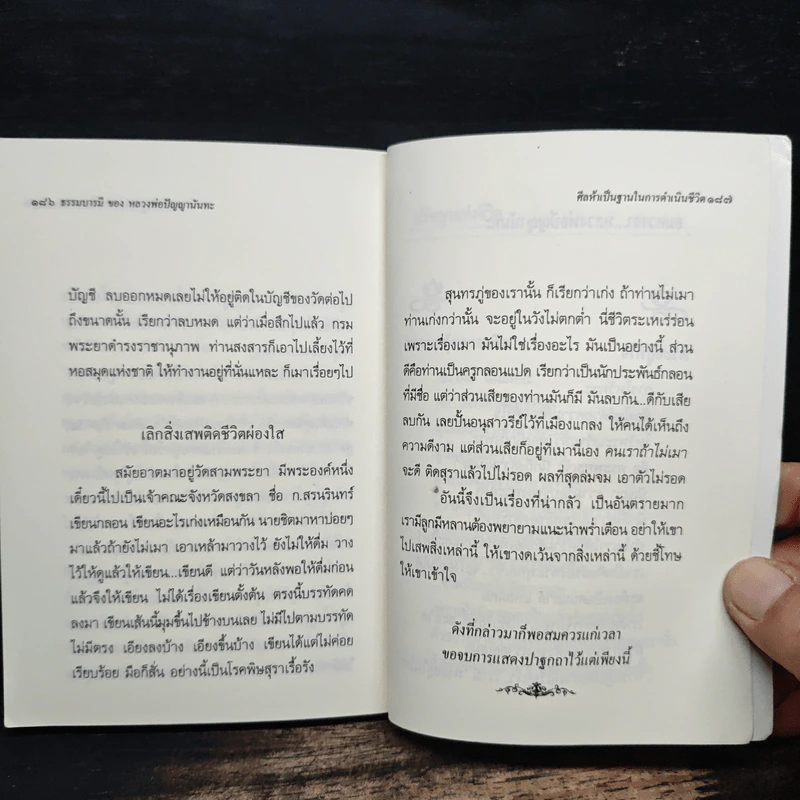 ๑๘๖ ธรรมบารมี ของ หลวงพ่อปัญญานันทะ
บัญชี ลบออกหมดเลยไม่ให้อยู่ติดในบัญชีของวัดต่อไป
ถึงขนาดนั้น เรียกว่าลบหมด แต่ว่าเมื่อสึกไปแล้ว กรม
พระยาดำรงราชานุภาพ ท่านสงสารก็เอาไปเลี้ยงไว้ที่
หอสมุดแห่งชาติ ให้ทำงานอยู่ที่นั่นแหละ ก็เมาเรื่อยๆไป
เลิกสิ่งเสพติดชีวิตผ่องใส
สมัยอาตมาอยู่วัดสามพระยา มีพระองค์หนึ่ง
เดี๋ยวนี้ไปเป็นเจ้าคณะจังหวัดสงขลา ชื่อ ก.สรนรินทร์
เขียนกลอน เขียนอะไรเก่งเหมือนกัน นายชิตมาหาบ่อยๆ
มาแล้วถ้ายังไม่เมา เอาเหล้ามาวางไว้ ยังไม่ให้ดื่ม วาง
ไว้ให้ดูแล้วให้เขียน...เขียนดี แต่ว่าวันหลังพอให้ดื่มก่อน
แล้วจึงให้เขียน ไม่ได้เรื่องเขียนตั้งต้น ตรงนี้บรรทัดคด
ลงมา เขียนเส้นนี้มุมขึ้นไปข้างบนเลย ไม่มีไปตามบรรทัด
ไม่มีตรง เอียงลงบ้าง เอียงขึ้นบ้าง เขียนได้แต่ไม่ค่อย
เรียบร้อย มือก็สั่น อย่างนี้เป็นโรคพิษสุราเรื้อรัง
ศีลห้าเป็นฐานในการดำเนินชีวิต ๑๘๗
สุนทรภู่ของเรานั้น ก็เรียกว่าเก่ง ถ้าท่านไม่เมา
ท่านเก่งกว่านั้น จะอยู่ในวังไม่ตกต่ำ นี่ชีวิตระเหเร่ร่อน
เพราะเรื่องเมา มันไม่ใช่เรื่องอะไร มันเป็นอย่างนี้ ส่วน
ดีคือท่านเป็นครูกลอนแปด เรียกว่าเป็นนักประพันธ์กลอน
ที่มีชื่อ แต่ว่าส่วนเสียของท่านมันก็มี มันลบกัน...ดีกับเสีย
ลบกัน เลยปั้นอนุสาวรีย์ไว้ที่เมืองแกลง ให้คนได้เห็นถึง
ความดีงาม แต่ส่วนเสียก็อยู่ที่เมานี่เอง คนเราถ้าไม่เมา
จะดี ติดสุราแล้วไปไม่รอด ผลที่สุดล่มจม เอาตัวไม่รอด
อันนี้จึงเป็นเรื่องที่น่ากลัว เป็นอันตรายมาก
เรามีลูกมีหลานต้องพยายามแนะนำพร่ำเตือน อย่าให้เขา
ไปเสพสิ่งเหล่านี้ ให้เขางดเว้นจากสิ่งเหล่านี้ ด้วยชี้โทษ
ให้เขาเข้าใจ
ดังที่กล่าวมาก็พอสมควรแก่เวลา
ขอจบการแสดงปาฐกถาไว้แต่เพียงนี้